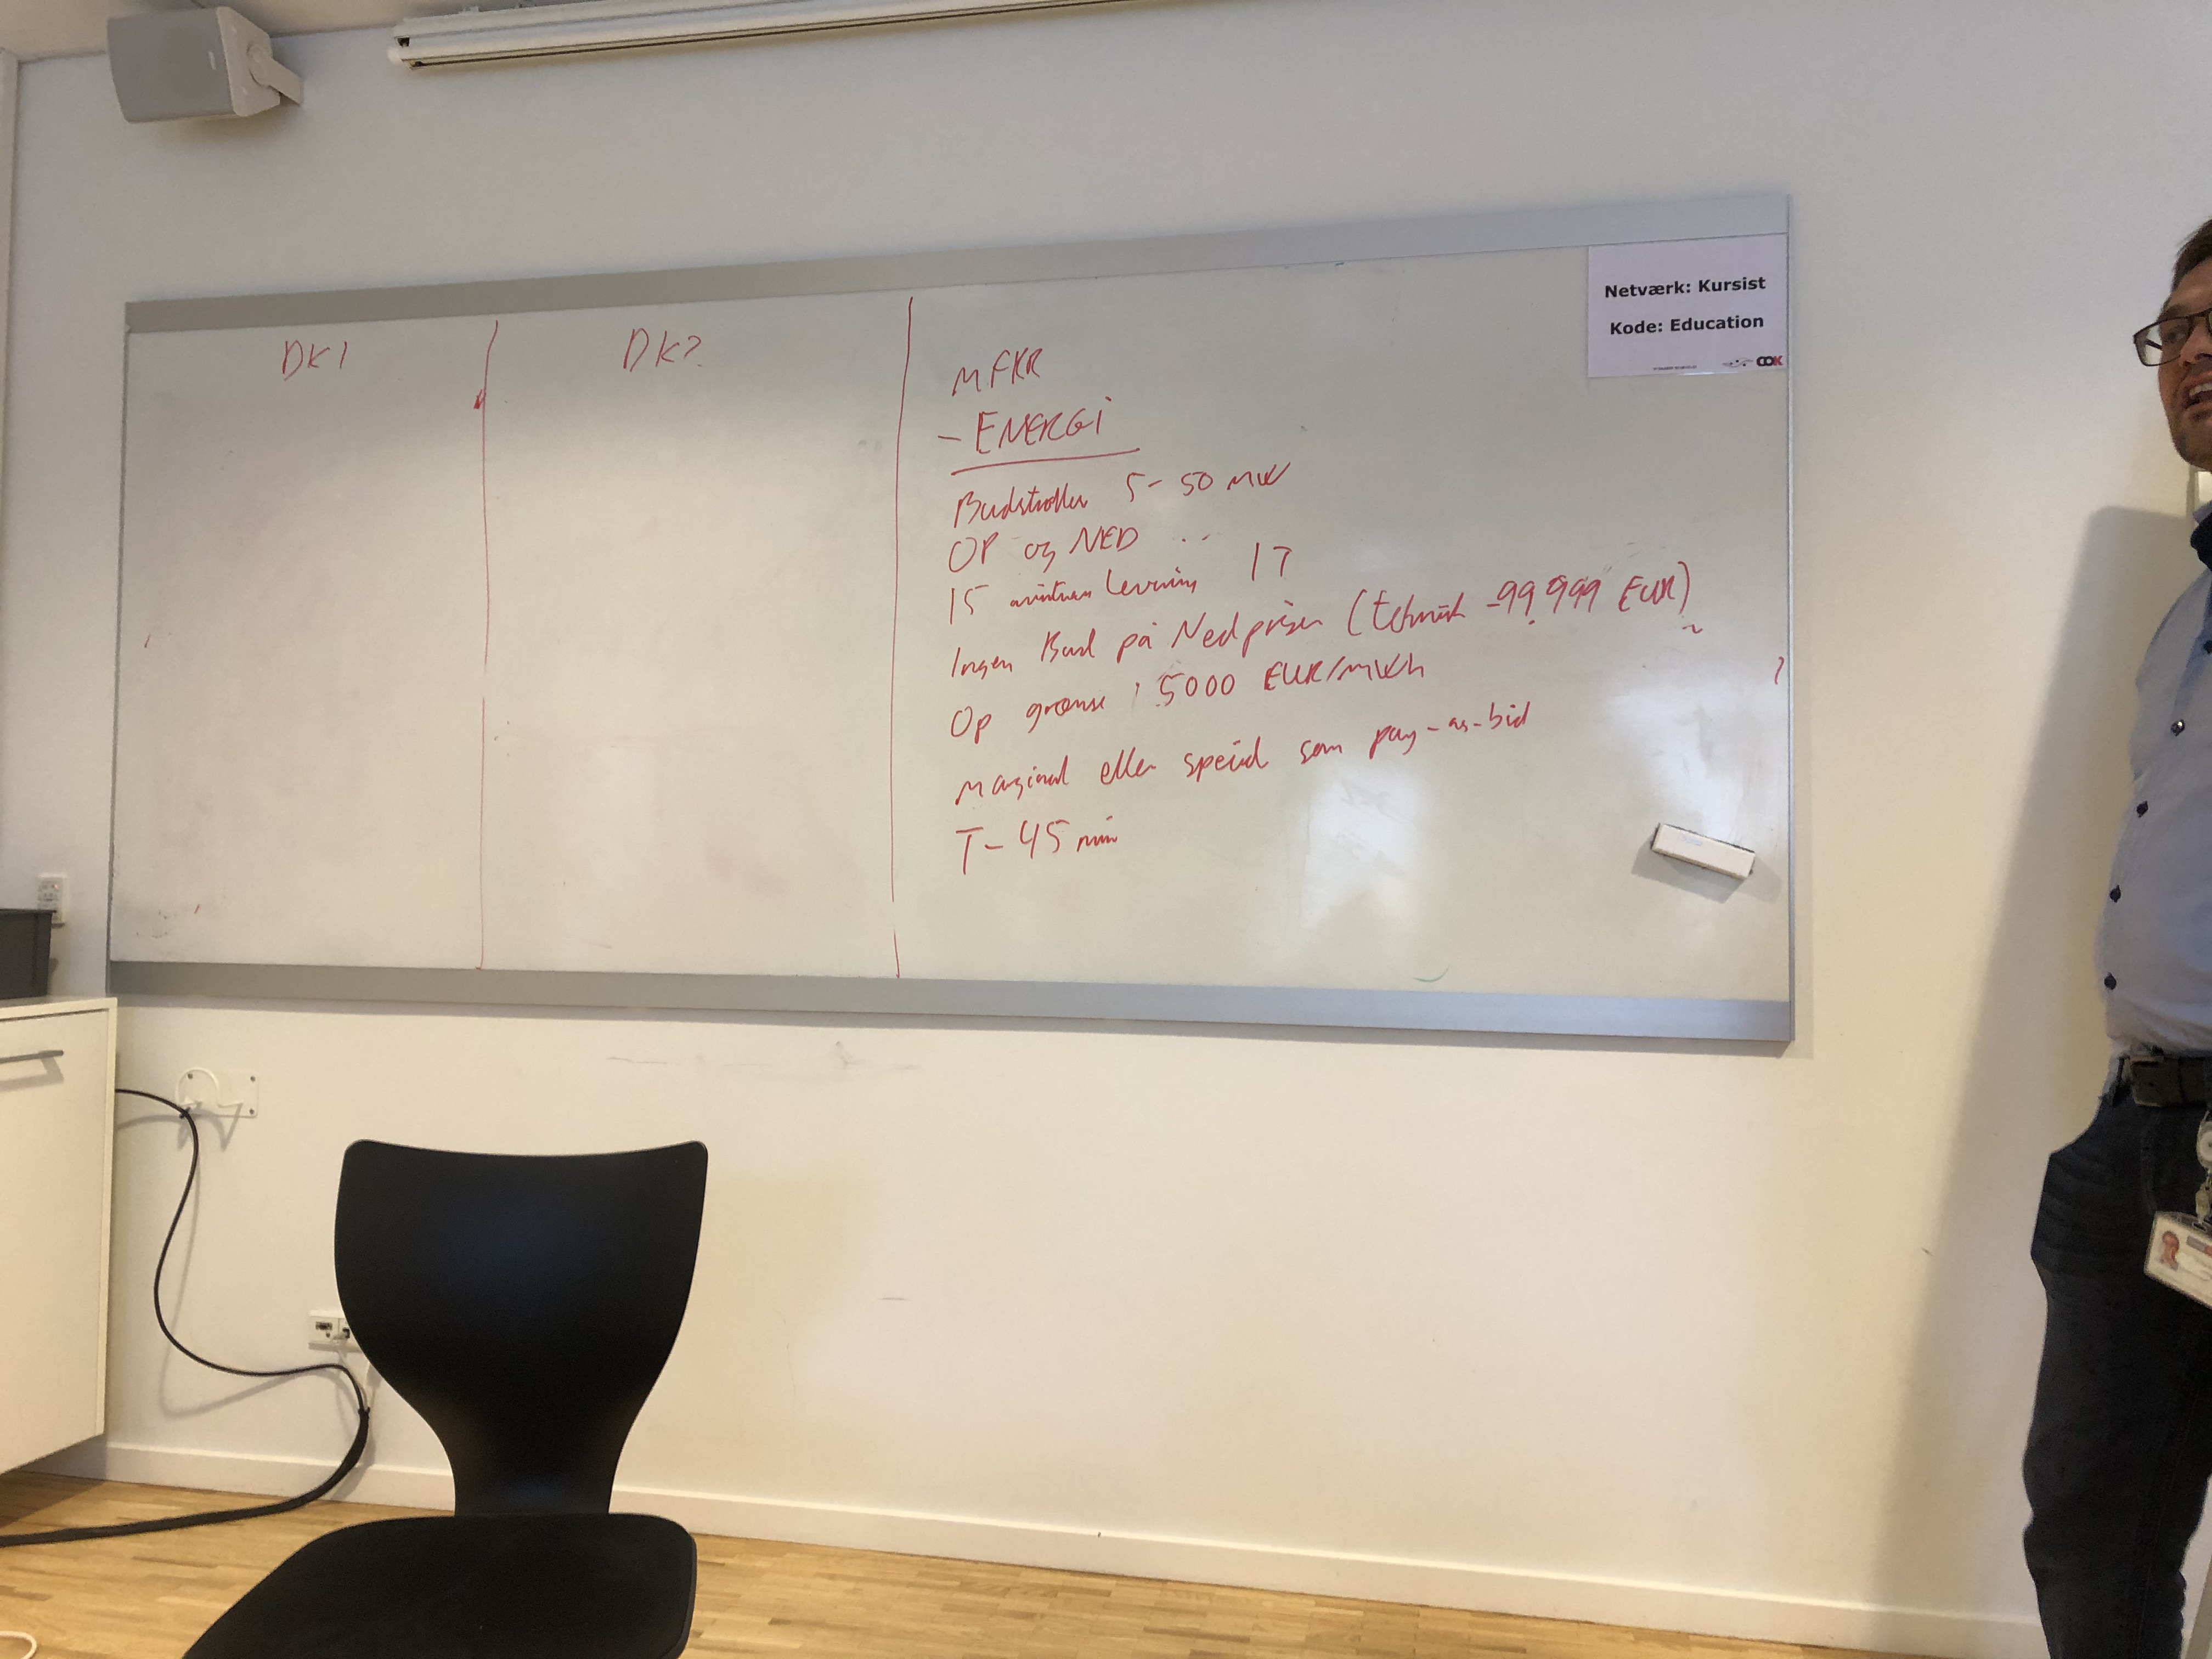 DK1
DK2
MFRR
- ENERGI
Budstrørrelse 5-50 MW
OP og NED ..
15 minutters levering 17
Ingen Bud på Ned prisen (teknisk -99.999 EUR)
Op grænse : 5000 EUR/MWh
Marginal eller speciel som pay-as-bid
T- 45 min
Netværk: Kursist
Kode: Education
COK